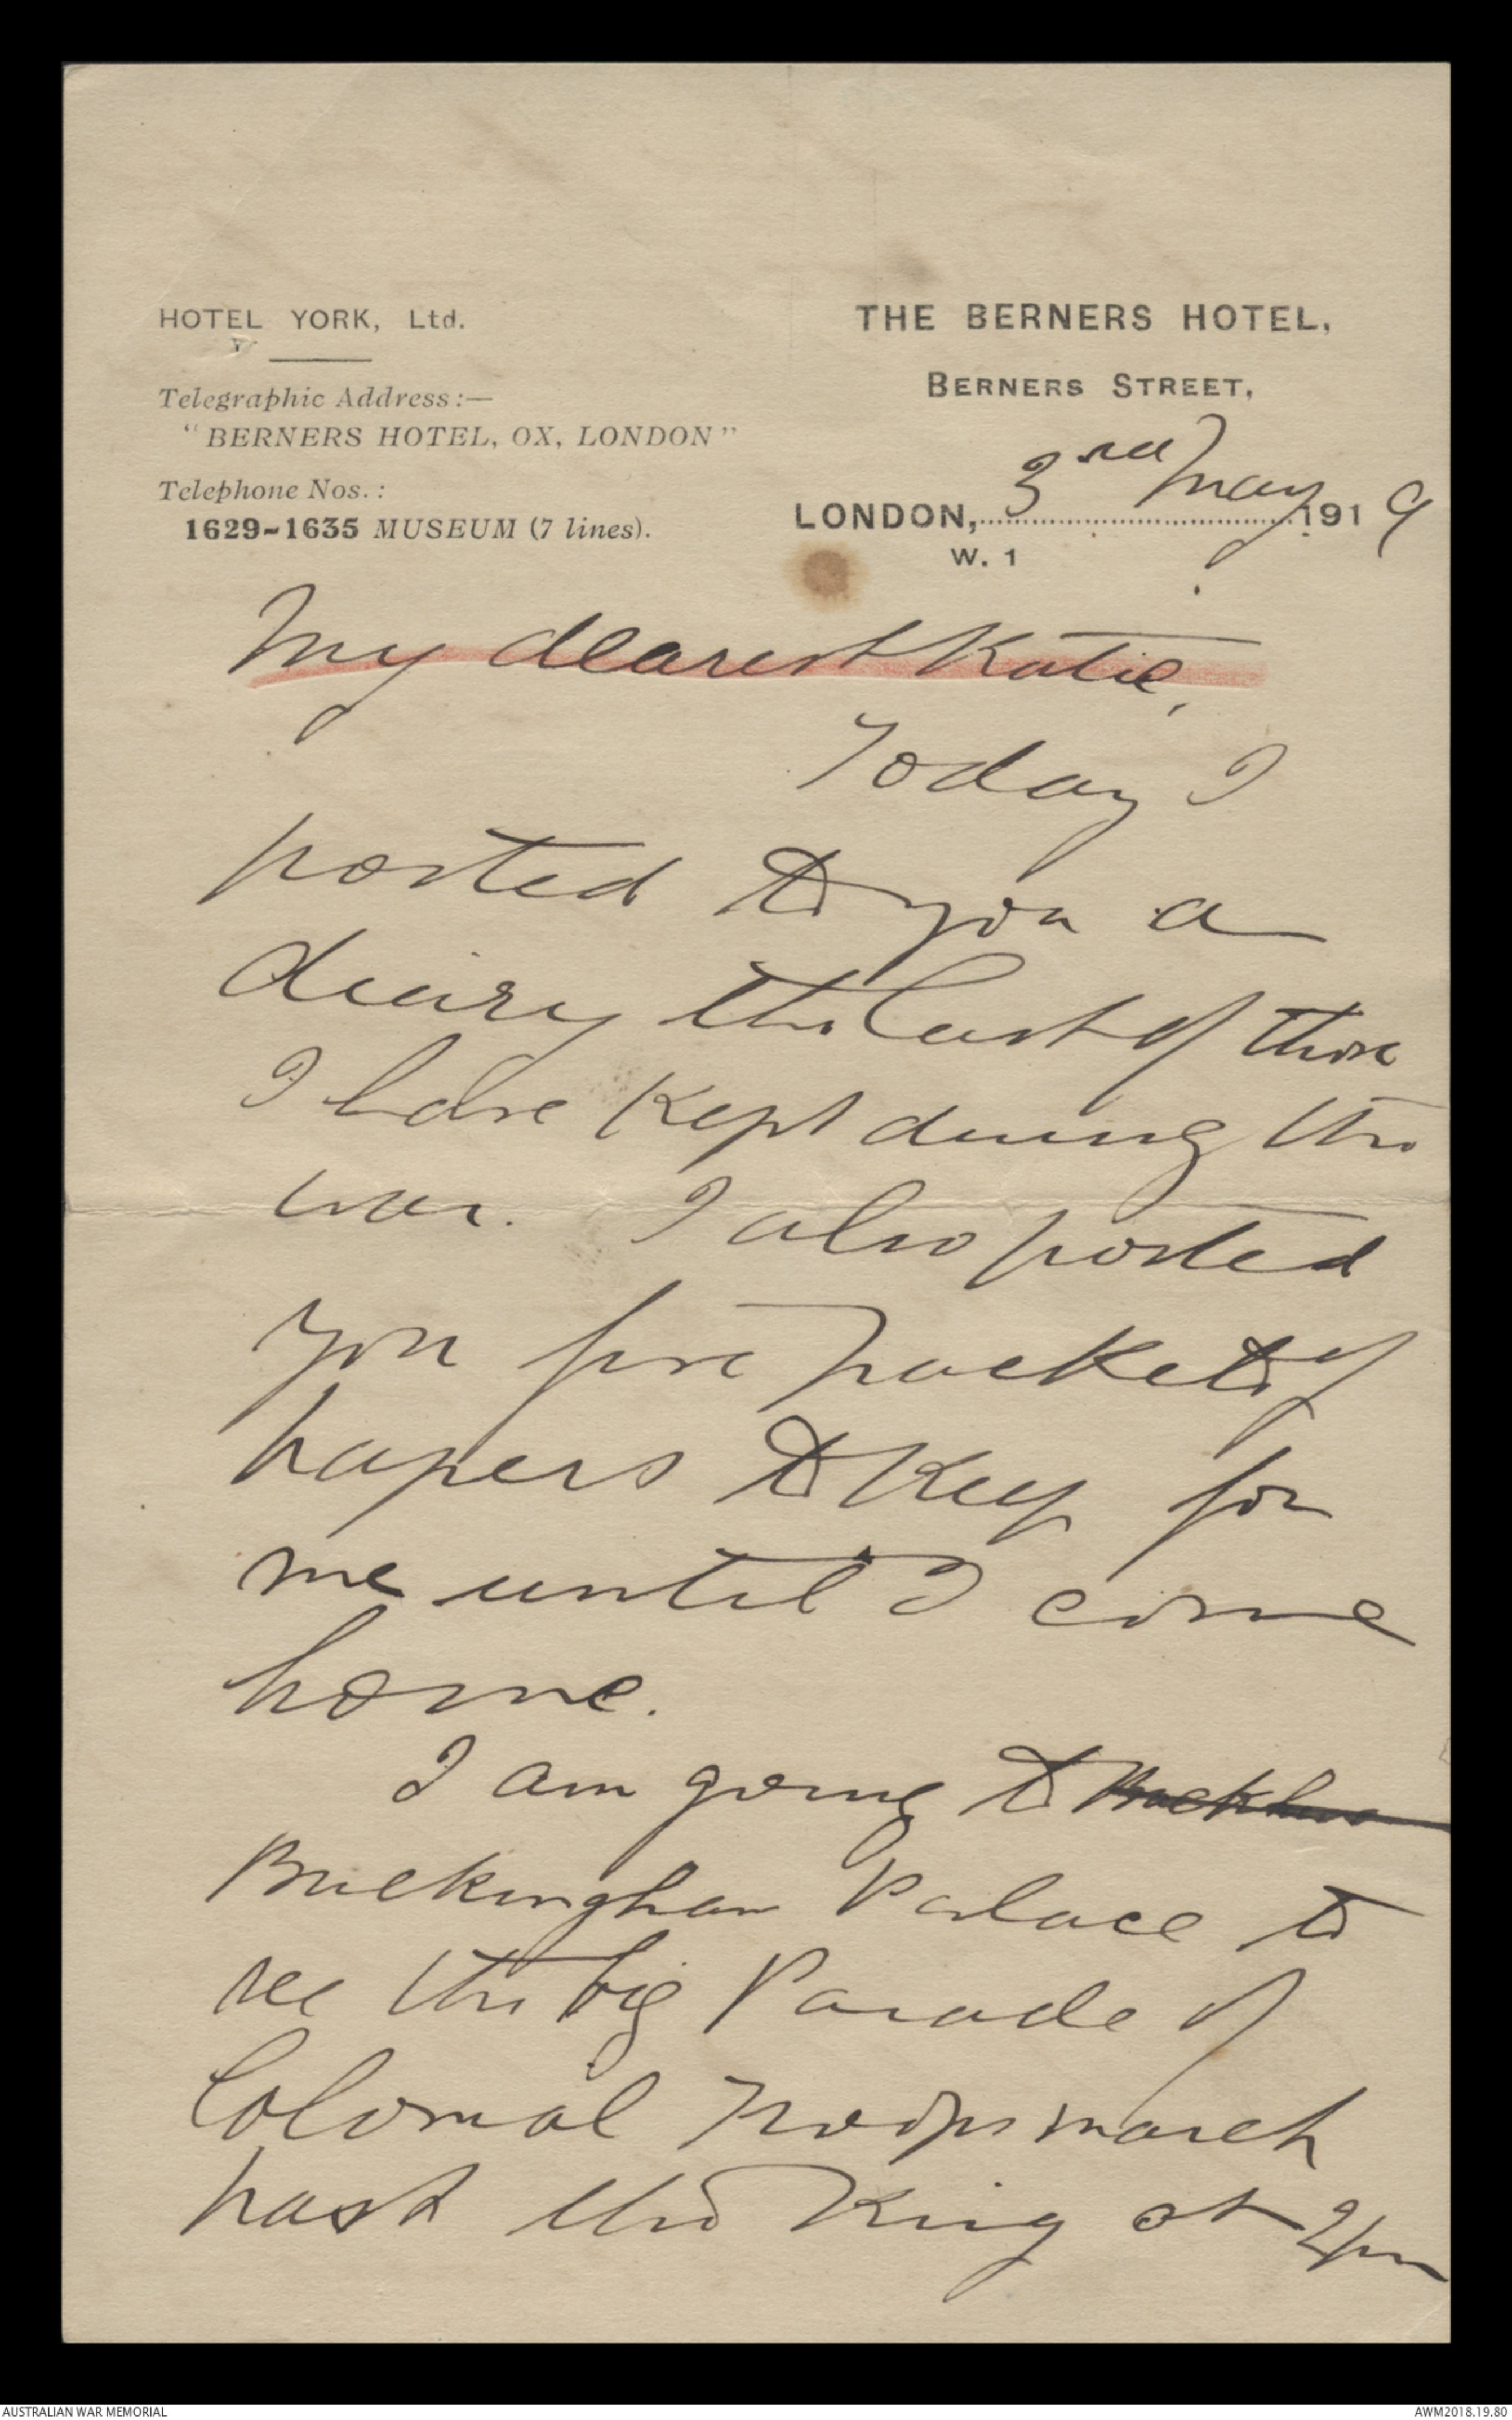 HOTEL YORK, Ltd.
Telegraphic Address:—
"BERNERS HOTEL, OX, LONDON"
Telephone Nos.:
1629-1635 MUSEUM (7 lines).
THE BERNERS HOTEL,
BERNERS STREET,
LONDON, 3rd May 1919
W. 1
My dearest Katie,
Today I
posted to you a
diary the last of those
I have kept during the
war. I also posted
you five packets of
papers to keep for
me until I come
home.
I am going to
Buckingham Palace to
see the big Parade of
Colonial Troops march
past the King at 2pm
AUSTRALIAN WAR MEMORIAL
AWM2018.19.80